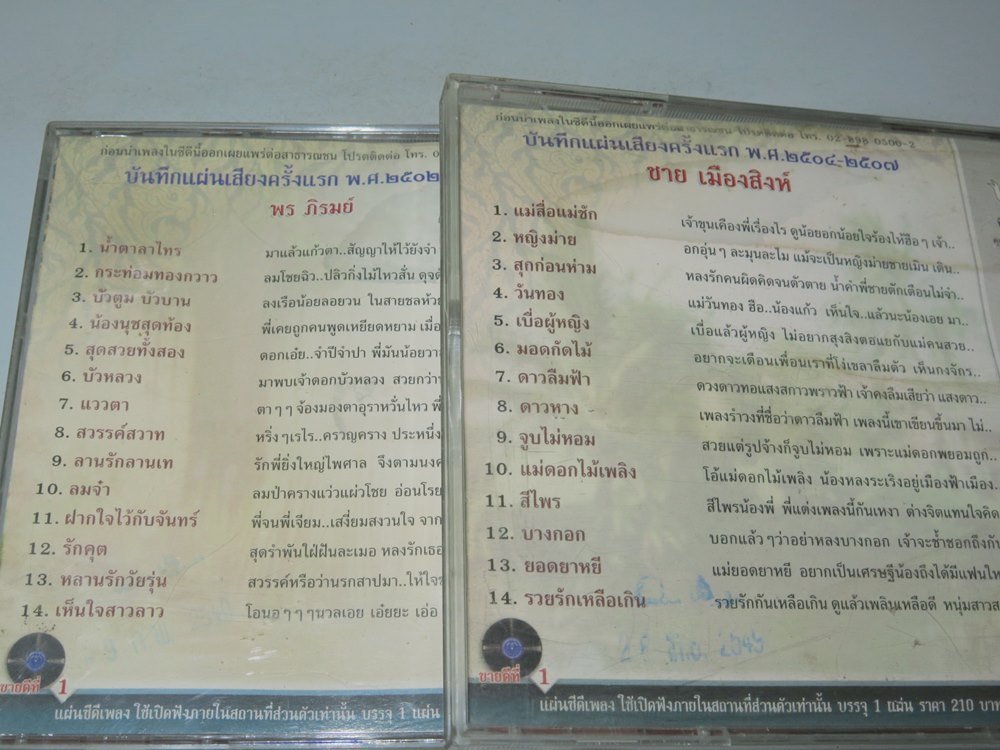 ก่อนนำเพลงในซีดีนี้ออกเผยแพร่ต่อสาธารณชน โปรดติดต่อ โทร. 0
บันทึกแผ่นเสียงครั้งแรก พ.ศ.๒๕๐๒
พร ภิรมย์
1. น้ำตาลาไทร มาแล้วแก้วตา..สัญญาให้ไว้ยังจำ
2. กระท่อมทองกวาว ลมโชยฉิว..ปลิวกิ่งไม้ไหวสั่น ดุจดั
3. บัวตูม บัวบาน ลงเรือน้อยลอยวน ในสายชลห้วย
4. น้องนุชสุดท้อง พี่เคยถูกคนพูดเหยียดหยาม เมื่อ
5. สุดสวยทั้งสอง ดอกเอ๋ย..จำปีจำปา พี่มันน้อยวา
6. บัวหลวง มาพบเจ้าดอกบัวหลวง สวยกว่า
7. แววตา ตาๆๆ จ้องมองตาอุราหวั่นไหว พี่
8. สวรรค์สวาท หริ่งๆเรไร..ครวญคราง ประหนึ่ง
9. ลานรักลานเท รักพี่ยิ่งใหญ่ไพศาล จึงตามนงค
10. ลมจ๋า ลมป่าครางแว่วแผ่วโชย อ่อนโรย
11. ฝากใจไว้กับจันทร์ พี่จนพี่เจียม..เสงี่ยมสงวนใจ จาก
12. รักคุต สุดรำพันใฝ่ฝันละเมอ หลงรักเธอ
13. หลานรักวัยรุ่น สวรรค์หรือว่านรกสาปมา..ให้ใจ
14. เห็นใจสาวลาว โอนอๆๆๆนวลเอย เอ๋ยยะ เอ่อ
ขายดีที่ 1
แผ่นซีดีเพลง ใช้เปิดฟังภายในสถานที่ส่วนตัวเท่านั้น บรรจุ 1 แผ่น
ก่อนนำเพลงในซีดีนี้ออกเผยแพร่ต่อสาธารณชน โปรดติดต่อ โทร. 02-898 0500-2
บันทึกแผ่นเสียงครั้งแรก พ.ศ.๒๕๐๔-๒๕๐๗
ชาย เมืองสิงห์
1. แม่สื่อแม่ชัก เจ้าขุนเคืองพี่เรื่องไร ดูน้อยอกน้อยใจร้องไห้ฮือๆ เจ้า..
2. หญิงม่าย อกอุ่นๆ ละมุนละไม แม้จะเป็นหญิงม่ายชายเมิน เดิน..
3. สุกก่อนห่าม หลงรักคนผิดคิดจนตัวตาย น้ำคำพี่ชายตักเตือนไม่จำ..
4. วันทอง แม่วันทอง ฮือ..น้องแก้ว เห็นใจ..แล้วนะน้องเอย มา..
5. เบื่อผู้หญิง เบื่อแล้วผู้หญิง ไม่อยากสุงสิงตอแยกับแม่คนสวย..
6. มอดกัดไม้ อยากจะเตือนเพื่อนเราที่โง่เซลาลืมตัว เห็นกงจักร..
7. ดาวลืมฟ้า ดวงดาวทอแสงสกาวพราวฟ้า เจ้าคงลืมเสียว่า แสงดาว..
8. ดาวหาง เพลงรำวงที่ชื่อว่าดาวลืมฟ้า เพลงนี้เขาเขียนขึ้นมา ไม่..
9. จูบไม่หอม สวยแต่รูปจ้างก็จูบไม่หอม เพราะแม่ดอกพยอมถูก..
10. แม่ดอกไม้เพลิง โอ้แม่ดอกไม้เพลิง น้องหลงระเริงอยู่เมืองฟ้าเมือง.
11. สีไพร สีไพรน้องพี่ พี่แต่งเพลงนี้กันเหงา ต่างจิตแทนใจคิด
12. บางกอก บอกแล้วๆว่าอย่าหลงบางกอก เจ้าจะช้ำชอกถึงกับ
13. ยอดยาหยี แม่ยอดยาหยี อยากเป็นเศรษฐีน้องถึงได้มีแฟนให
14. รวยรักเหลือเกิน รวยรักกันเหลือเกิน ดูแล้วเพลินเหลือดี หนุ่มสาวส
ขายดีที่ 1
แผ่นซีดีเพลง ใช้เปิดฟังภายในสถานที่ส่วนตัวเท่านั้น บรรจุ 1 แผ่น ราคา 210 บาท